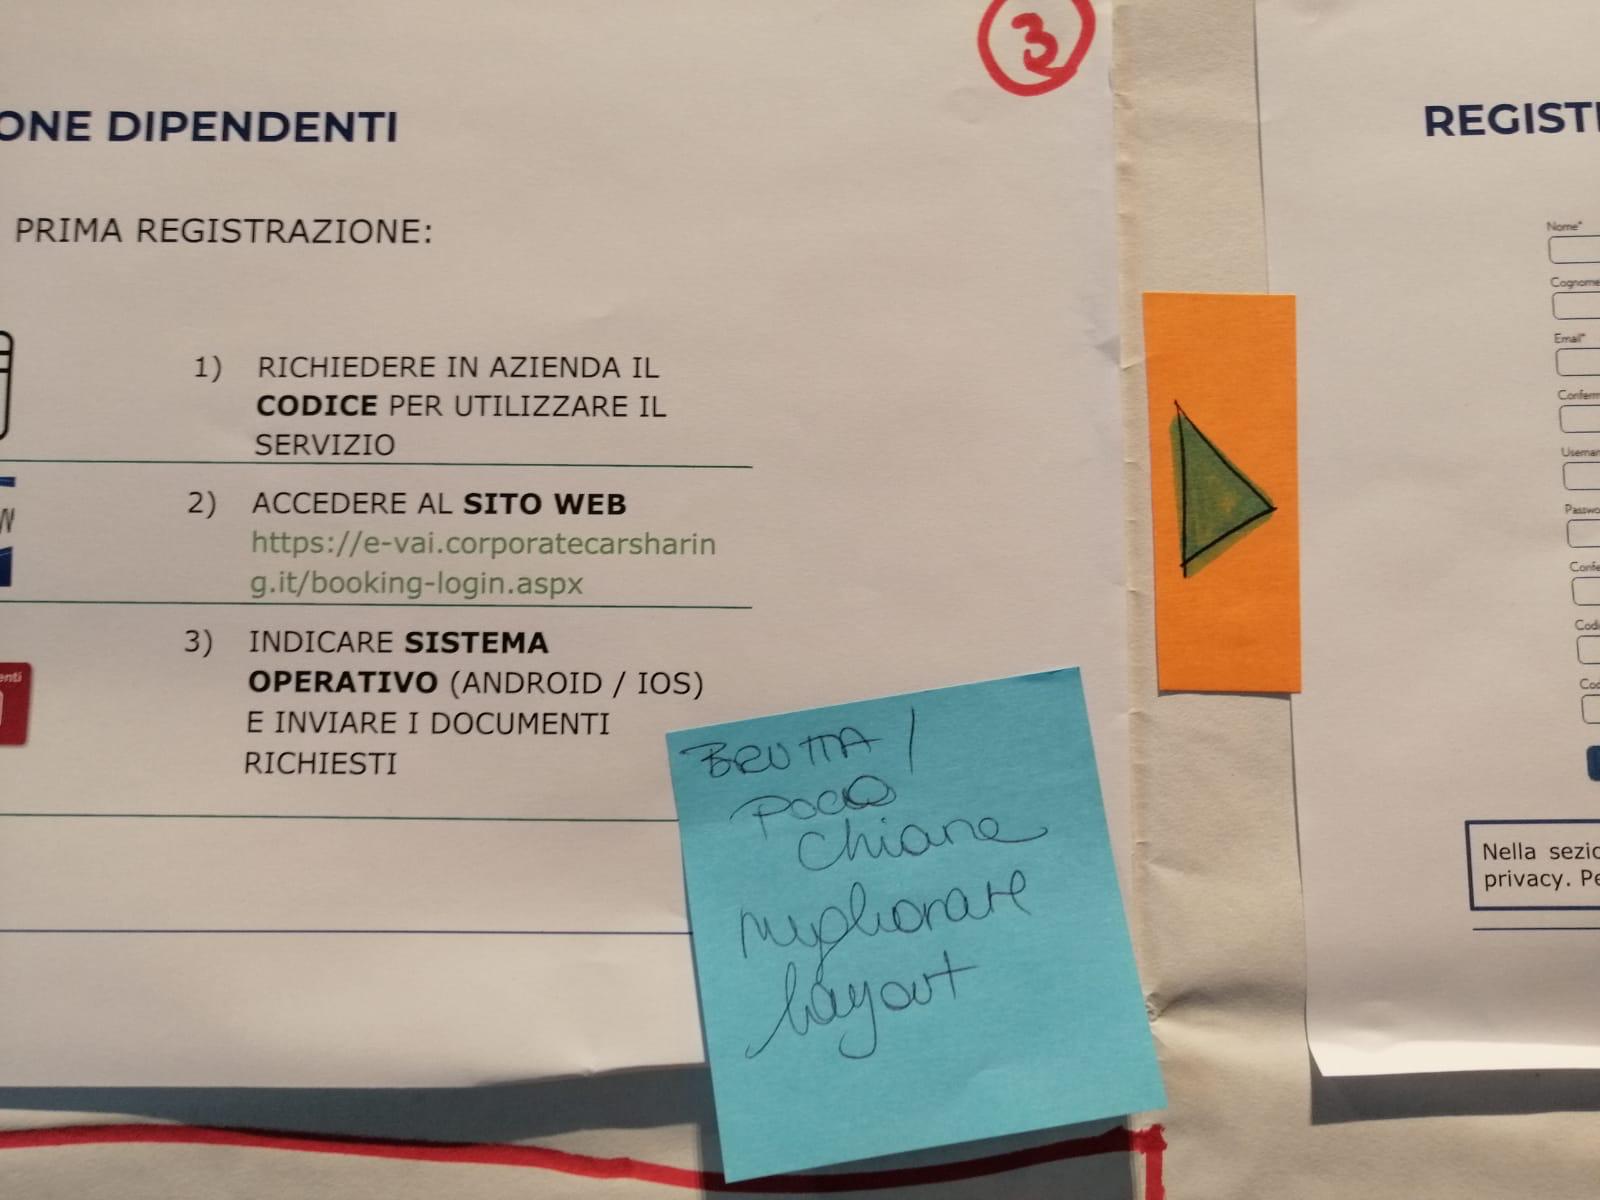 3
ONE DIPENDENTI
PRIMA REGISTRAZIONE:
1) RICHIEDERE IN AZIENDA IL
CODICE PER UTILIZZARE IL
SERVIZIO
W
2) ACCEDERE AL SITO WEB
https://e-vai.corporatecarsharin
g.it/booking-login.aspx
enti
3) INDICARE SISTEMA
OPERATIVO (ANDROID / IOS)
E INVIARE I DOCUMENTI
RICHIESTI
BRUTTA /
POCO
Chiara
migliorare
layout
REGISTR
Nome*
Cognome
Email*
Conferm
Usernam
Passwo
Confe
Codi
Cod
Nella sezio
privacy. Pe